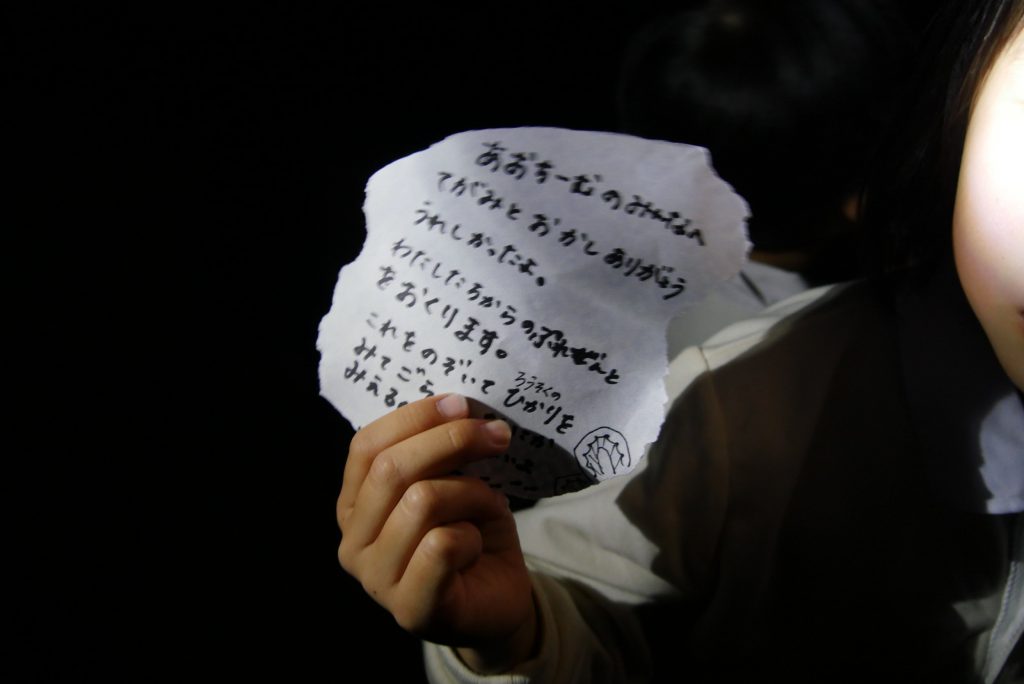 あおずーむのみんなへ
てがみとおかしありがとう
うれしかったよ。
わたしたちからのぷれぜんと
をおくります。
これをのぞいて ろうそくの
ひかりを
みてごら
みえる。